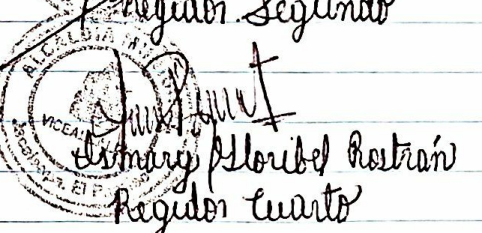 Regidor Segundo
ALCALDIA MU
VICEAL
Ismary Floribel Rostrán
Regidor Cuarto